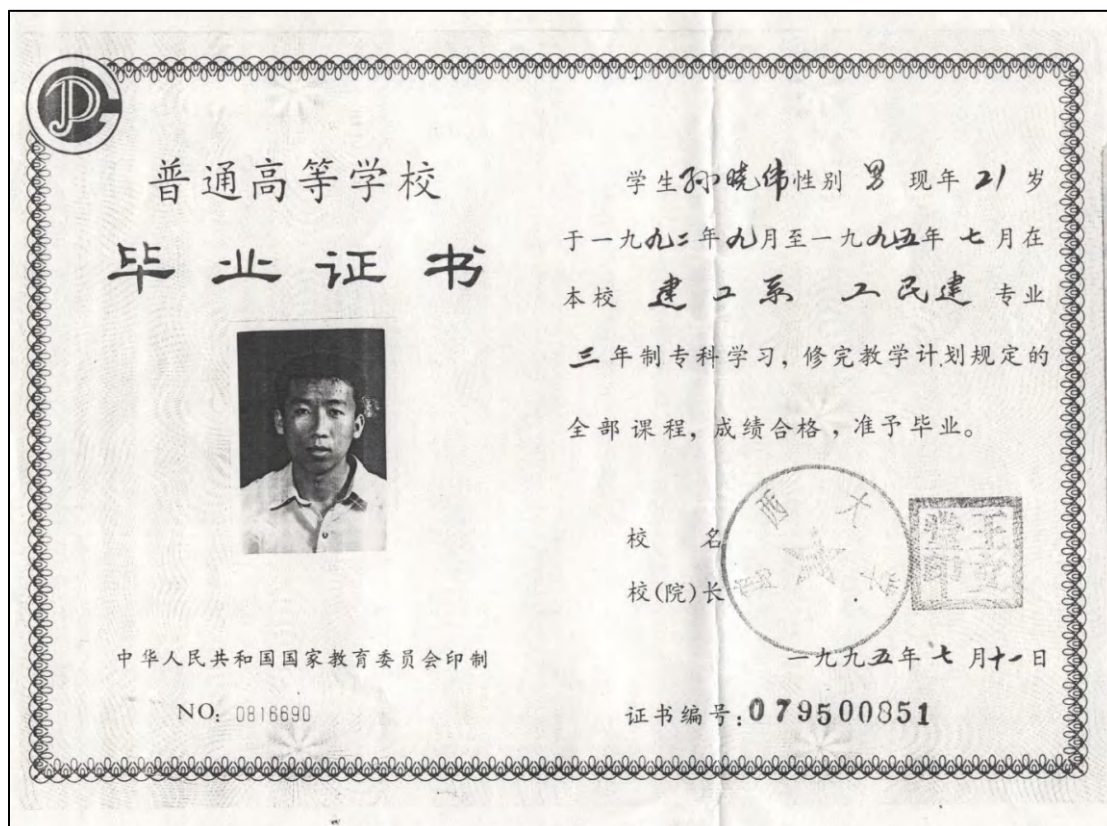 普通高等学校
毕业证书
中华人民共和国国家教育委员会印制
NO: 0816690
学生孙晓伟性别 男 现年 21 岁
于一九九二年九月至一九九五年 七 月在
本校 建工系 工民建 专业
三 年制专科学习, 修完教学计划规定的
全部课程, 成绩合格, 准予毕业。
校 名
西大
校(院)长
一九九五年 七 月十一日
证书编号: 079500851